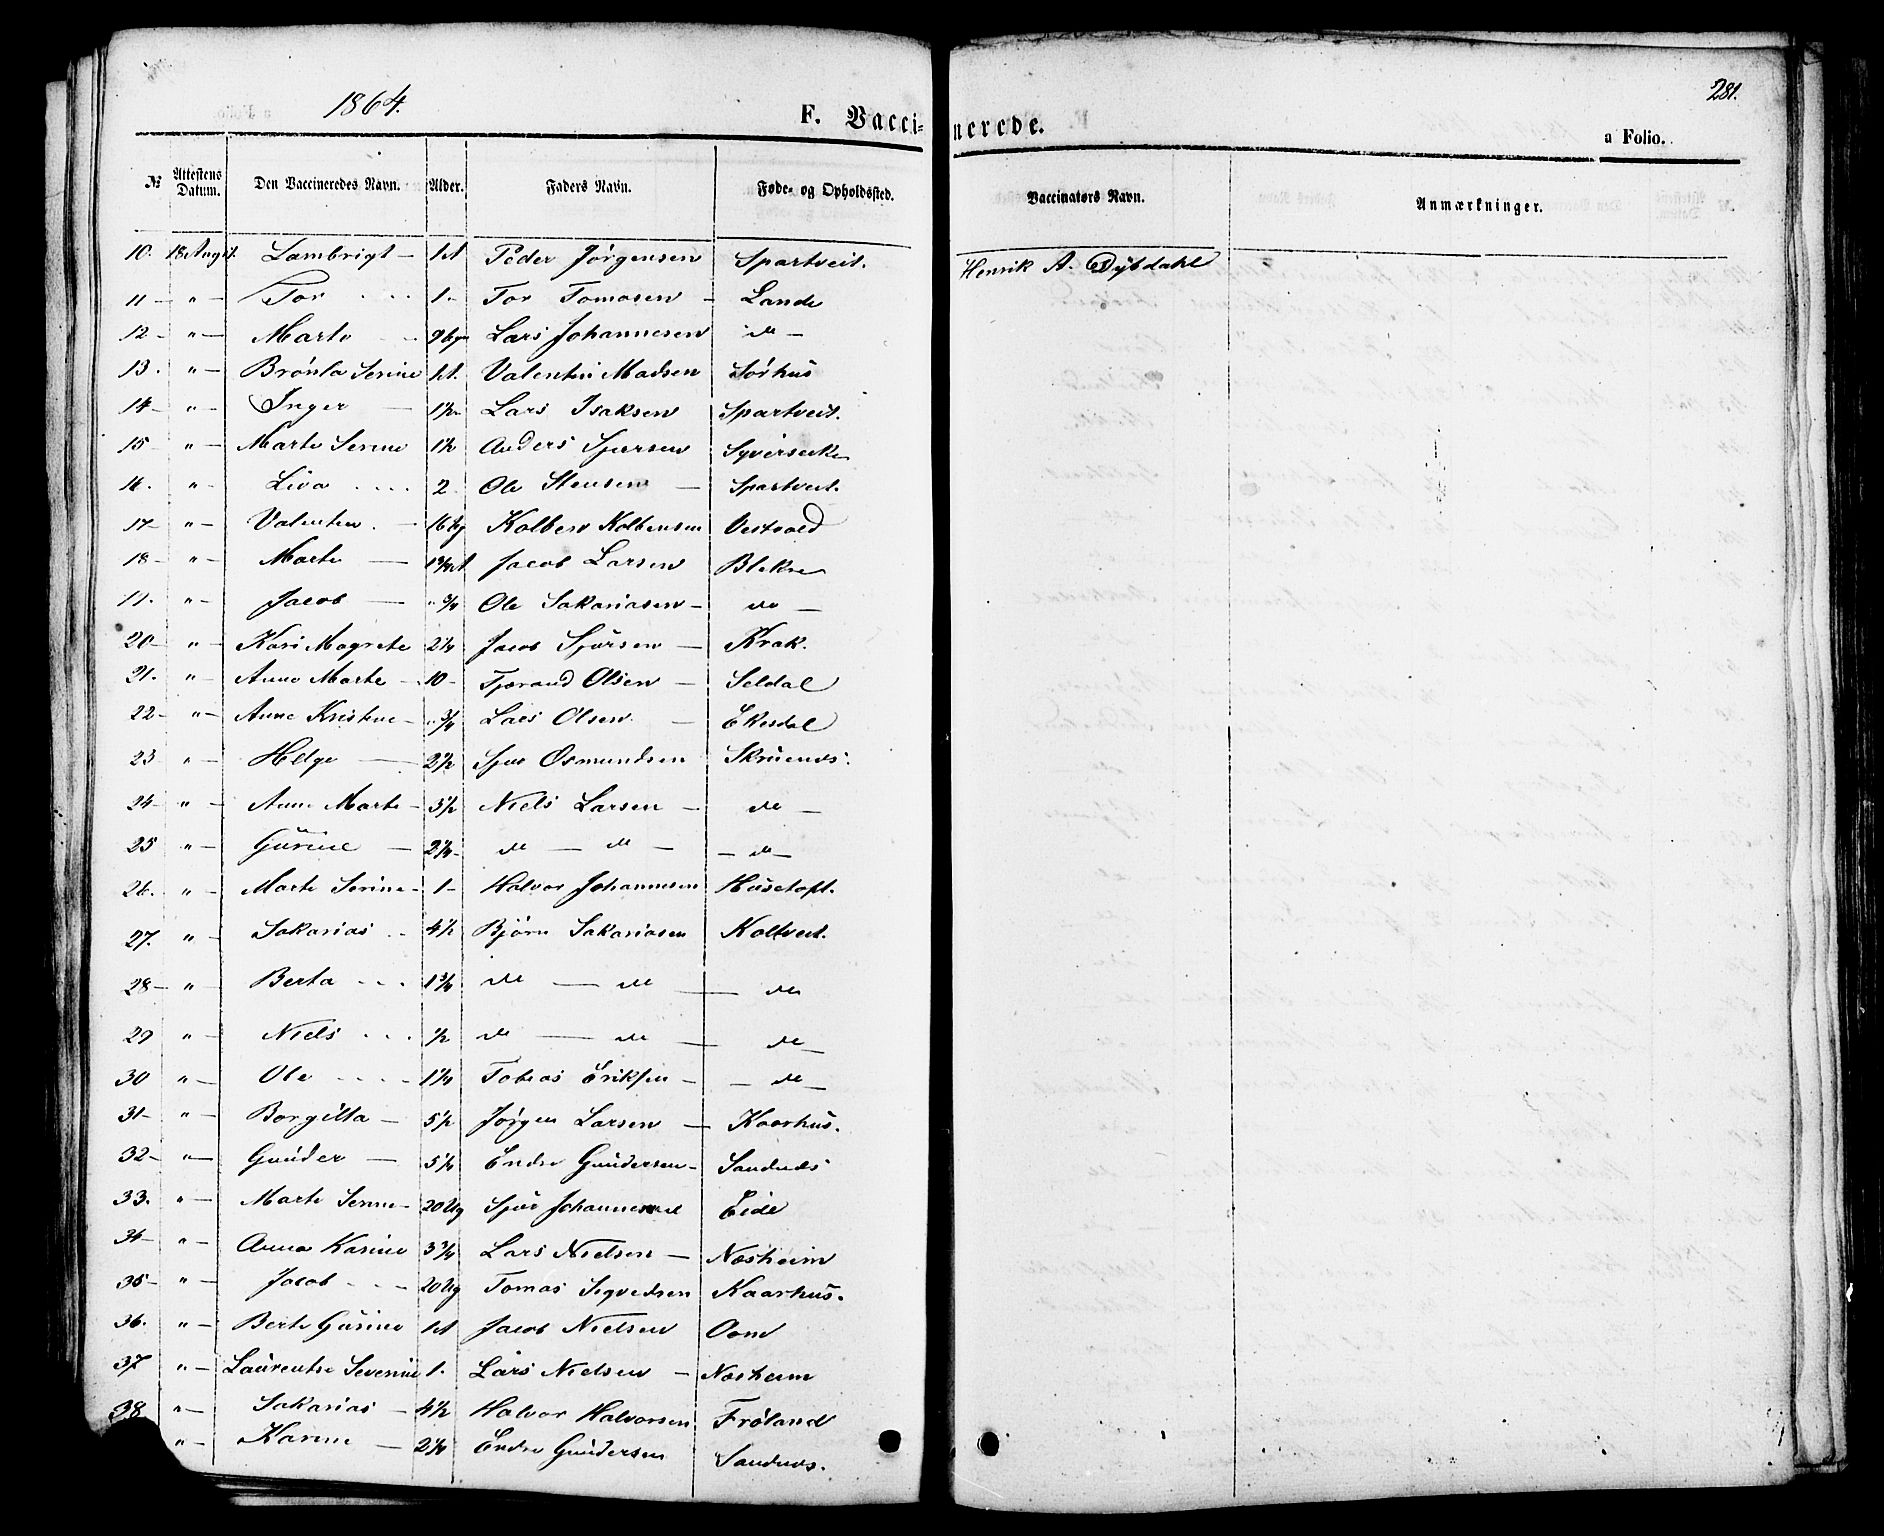 1864. F. Vacci- nerede. 281.
a Folio.
№ Attestens Datum. Den Vaccineredes Navn. Alder. Faders Navn. Føde- og Opholdssted. Vaccinators Navn. Anmærkninger.
10. 18 Augst. Lambrigt - 1 Peder Jørgensen Spartveit. Henrik A. Dybdahl
11 - " - Tor 1 - Tor Tomasen - Lande
12 - " - Marte Lars Johannesen do -
13. " - Serine Valentin Madsen Sørhus
14 - " - Inger - 1½ - Lars Isaksen Spartveit.
15 " - Marte Serine 1½ Anders Spersen
16. " - Liva 2 Ole Stensen - Spartveit.
17 - " - Valentin. - 16 Ug Kolben Kolbensen Vestvold
18 - " - Marte - Jacob Larsen Blekne
" - Jacob - Ole Sakariasen - do -
20 - " - Kari Magrete 2¼ Jacob - Krak.
21. " - Anne Marte - 10 - Tjerand Olsen - Seldal
22 - " - Anne Kristine - " ¾ Lars Olsen - Ekesdal
23 " - Helge - 2½ Osmundsen
24 - " - Anne Marte - 3½ Niels Larsen - do -
25 " - Gurine - 2¼ - do - do - - do -
26. " - Marte Serine - 1 - Halvor Johannesen Husetoft.
27. " - Sakarias 4½ Bjørn Sakariasen Koltveit.
28 - " - Berta 1¾ do - do - do
29 " - Niels ½ do - do - do -
30 " - Ole 1¼ Tobias Eriksen - - do -
31 - " - Borgilla - 5½ Jørgen Larsen - Kaarhus.
32 - " - Gunder - 5¼ Endre Gundersen - Sandnes
33. " - Marte Serine - 20 Ug Johannesen Eide
34 - " - Anna Karine 3¾ Lars Nielsen - Næsheim
35 - " - Jacob 20 Ug Tomas Sigvedsen Kaarhus.
36. " - Berte Gurine 1 Jacob Nielsen Oom
37 " - Laurentse Severine 1. Lars Nielsen - Næsheim
38 " - Sakarias - 4½ Halvor Halvorsen Frøland
" - Karine - 2¼ Endre Gundersen Sandnes.